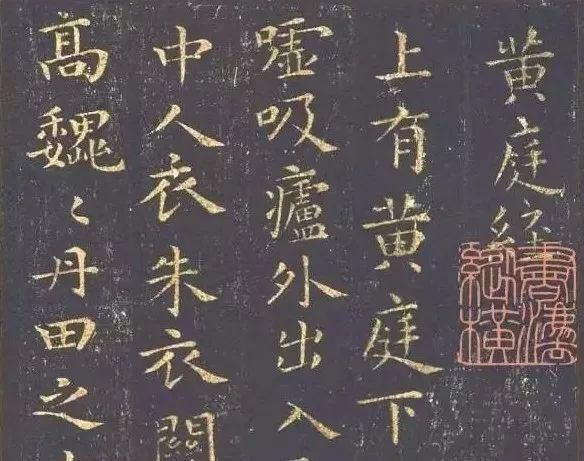 黄庭經
上有黄庭下
噓吸廬外出入
中人衣朱衣關
高巍〻丹田之